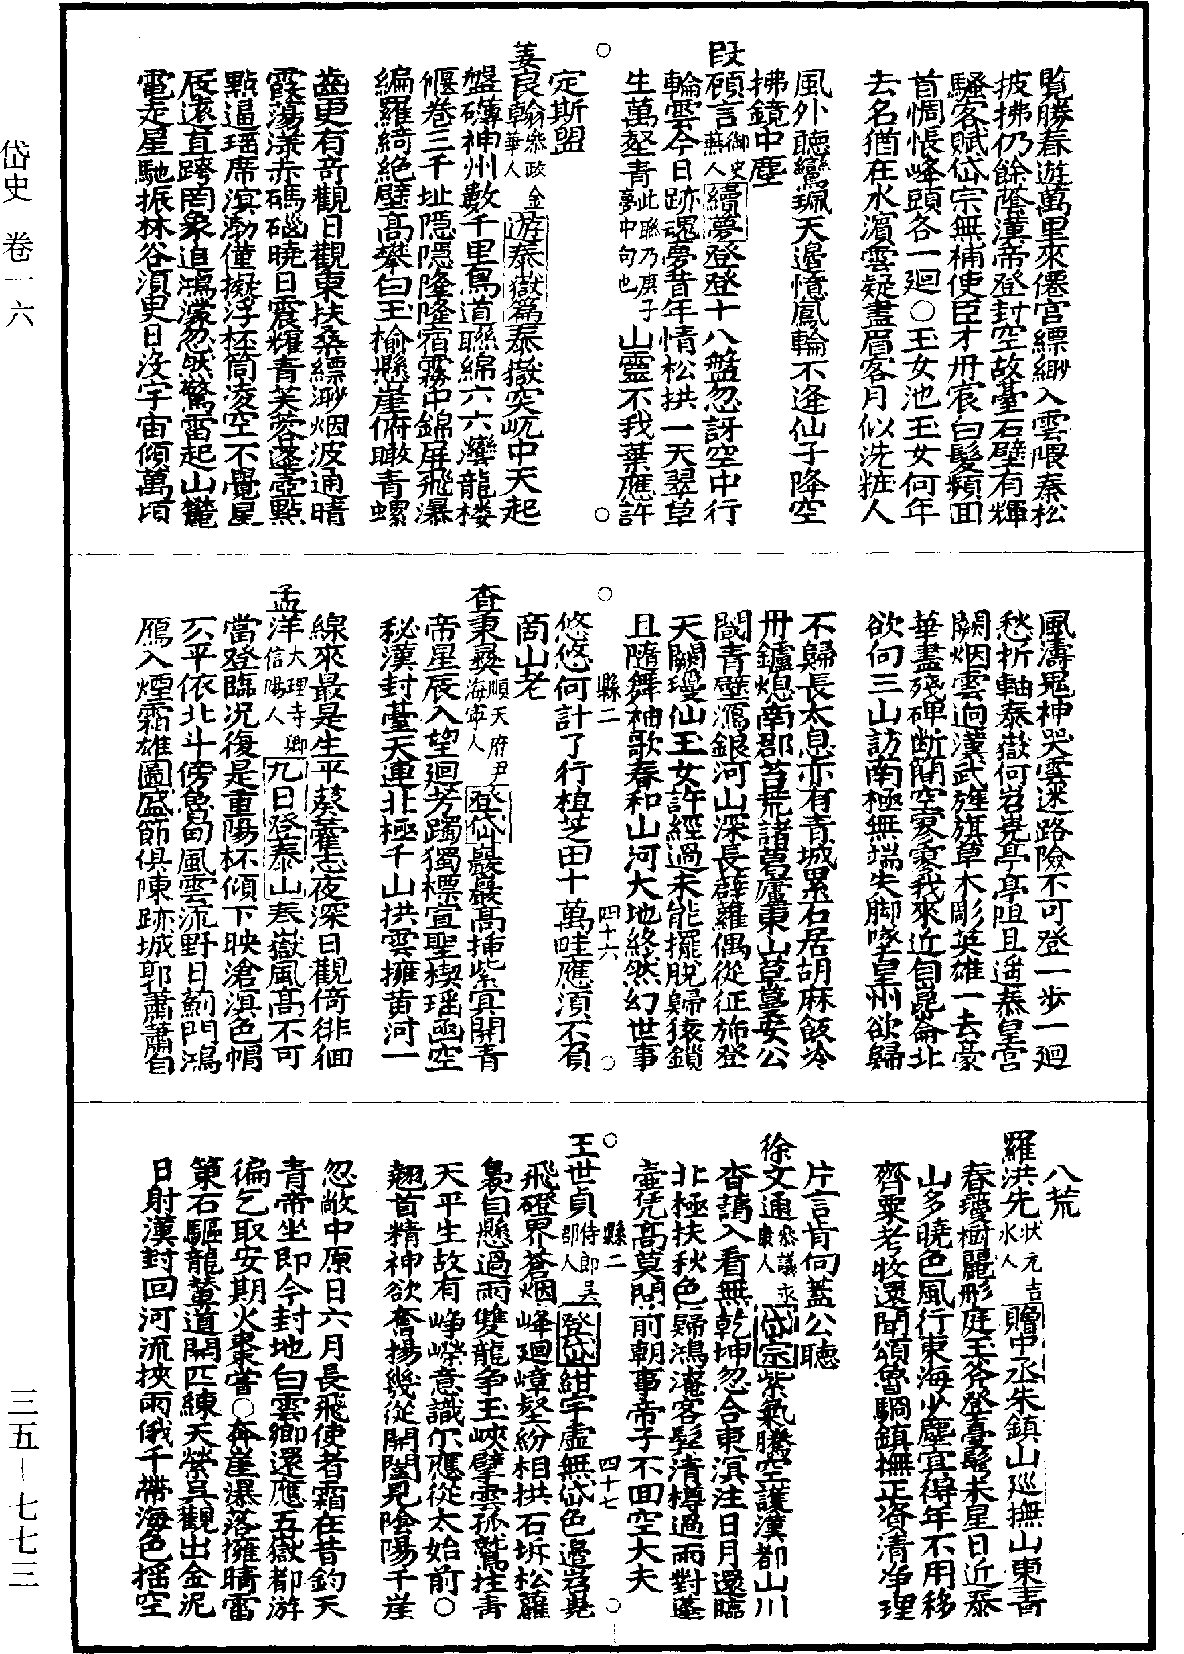 岱史 卷一六
三五-七七三
覧勝春遊萬里來僊宫縹緲入雲隈秦松
披拂仍餘蔭漢帝登封空故臺石壁有輝
騷客賦岱宗無補使臣才丹衷白髮頻回
首惆悵峰頭各一廻〇玉女池玉女何年
去名猶在水濱雲疑畫眉客月似洗粧人
風外聽鸞珮天邉憶鳳輪不逢仙子降空
拂鏡中塵
段顧言御史燕人續夢登登十八盤忽訝空中行
輪雲今日跡魂夢昔年情松拱一天翠草
生萬壑青此聯乃庚子夢中句也山靈不我棄應許
定斯盟
姜良翰參政金華人遊泰嶽篇泰嶽突屼中天起
盤礴神州數千里鳥道聮綿六六灣龍樓
偃巻三千址隠隠隆隆宿霧中錦屏飛瀑
編羅綺絶壁髙攀白玉榆懸崖俯瞰青螺
齒更有奇觀日觀東扶桑縹渺烟波通晴
霞蕩漾赤碼碯曉日震耀青芙蓉蓬壺點
點逼瑶席溟渤僅擬浮杯筒凌空不覺星
辰遠直跨罔象追鴻濛忽然驚雷起山麓
電走星馳振林谷湏臾日没宇宙傾萬頃
風濤鬼神哭雲迷路險不可登一步一廻
愁折軸泰嶽何岩嶤亭亭阻且遥秦皇宫
闕烟雲逈漢武旌旗草木彫英雄一去豪
華盡殘碑断簡空寥寥我來近自崑崙北
欲向三山訪南極無端失脚墜皇州欲歸
不歸長太息亦有青城累石居胡麻飯冷
丹鑪熄南郡苔荒諸葛廬東山草蔓安公
閣青壁瀉銀河山深長薜蘿偶從征斾登
天闕瑤仙玉女許經過未能擺脱歸猿鎖
且隨舞袖歌春和山河大地終然幻世事
悠悠何計了行植芝田十萬畦應湏不負
商山老
查秉彛順天府尹海寜人登岱巖巖髙揷紫㝠開青
帝星辰入望廻芳躅獨標宣聖楔瑶函空
秘漢封臺天連北極千山拱雲擁黄河一
線來最是生平葵藿志夜深日觀倚徘徊
孟洋大理寺卿信陽人九日登泰山泰嶽風髙不可
當登臨况復是重陽杯傾下映滄溟色帽
側平依北斗傍魯甸風雲流野日薊門鴻
鴈入煙霜雄圖盛節俱陳跡城郭蕭蕭自
八荒
羅洪先状元吉水人贈中丞朱鎮山廵撫山東青
春瓊樹麗彤庭玉斧登臺鬂未星日近泰
山多曉色風行東海少塵㝠得年不用移
齊粟老牧還聞頌魯駉鎮撫正資清净理
片言肯向蓋公聽
徐文通參議永康人岱宗紫氣騰空護漢都山川
杳靄入看無乾坤忽合東溟注日月還臨
北極扶秋色歸鴻淹客鬂清樽過雨對蓬
壷凭髙莫問前朝事帝子不回空大夫
王世貞侍郎吴郡人登岱紺宇虚無岱色邉岩嶤
飛磴界蒼烟峰廻嶂壑紛相拱石坼松蘿
裊自懸過雨雙龍争玉峽擘雲孤鷲拄青
天平生故有峥嶸意識尔應從太始前〇
翹首精神欲奮揚幾從開闔見隂陽千崖
忽敞中原日六月長飛使者霜在昔釣天
青帝坐即今封地白雲鄉還應五嶽都遊
徧乞取安期火棗嘗〇奔崖瀑落擁晴雷
策石驅龍輦道開匹練天縈吴觀出金泥
日射漢封回河流挾雨俄千帶海色揺空
縣二 四十六
縣二 四十七